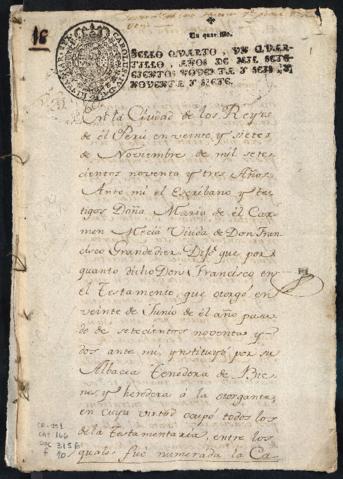 18
Un quartillo.
SELLO QVARTO, VN QVAR-
TILLO, AÑOS DE MIL SETE-
CIENTOS NOVENTA Y SEIS, Y
NOVENTA Y SIETE.
En la Ciudad de los Reyes
de el Perú en veinte y siete
de Noviembre de mil sete-
cientos noventa y tres Años
Ante mi el Escribano y tes-
tigos Doña Maria de el Car-
men Mecia Viuda de Don Fran-
cisco Grandedier Dixo que por
quanto dicho Don Francisco en
el Testamento, que otorgó en
veinte de Junio de el año pasa-
do de setecientos noventa y
dos ante mi, ynstituyó por su
Albacia Tenedora de Bie-
nes y heredora á la otorgante,
en cuya virtud ocupó todos los
de la Testamentaria, entre los
quales fue numerada la Ca-